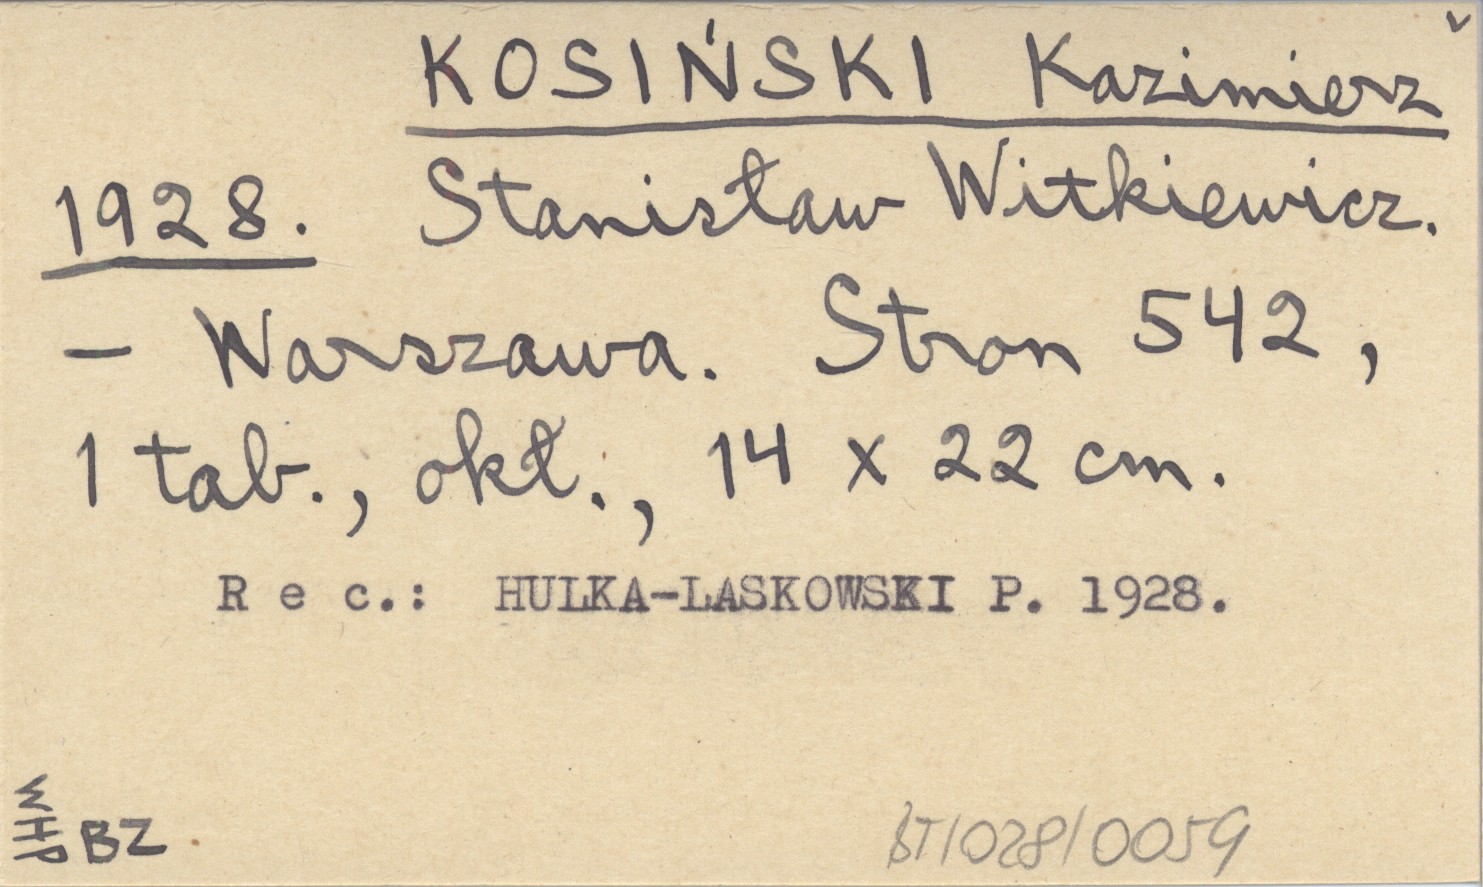 KOSIŃSKI Kazimierz
1928. Stanisław Witkiewicz.
– Warszawa. Stron 542,
1 tab., okł., 14 x 22 cm.
R e c.: HULKA-LASKOWSKI P. 1928.
BZ
BT/028/0059